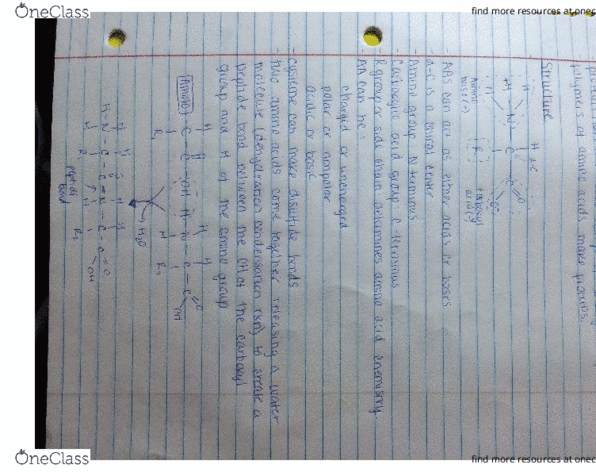 OneClass
find more resources at onec
polymers of amino acids, make proteins.
Structure
H
α C
H
+H - N - C - C
O
O-
H
R
H
Amino
Carboxyl
- AAs can act as either acids or bases
- α-C is a chiral center
- Amino group N-terminus
- Carboxylic acid group C-terminus
- R group or side chain determines amino acid chemistry
- AA can be:
charged or uncharged
polar or nonpolar
acidic or basic
- cysteine can make disulfide bonds
- two amino acids come together releasing a water
molecule (dehydration condensation rxn) to create a
peptide bond between the OH of the carboxyl
group and H of the amino group
H₂O
Peptide
bond
OneClass
find more resources at onec